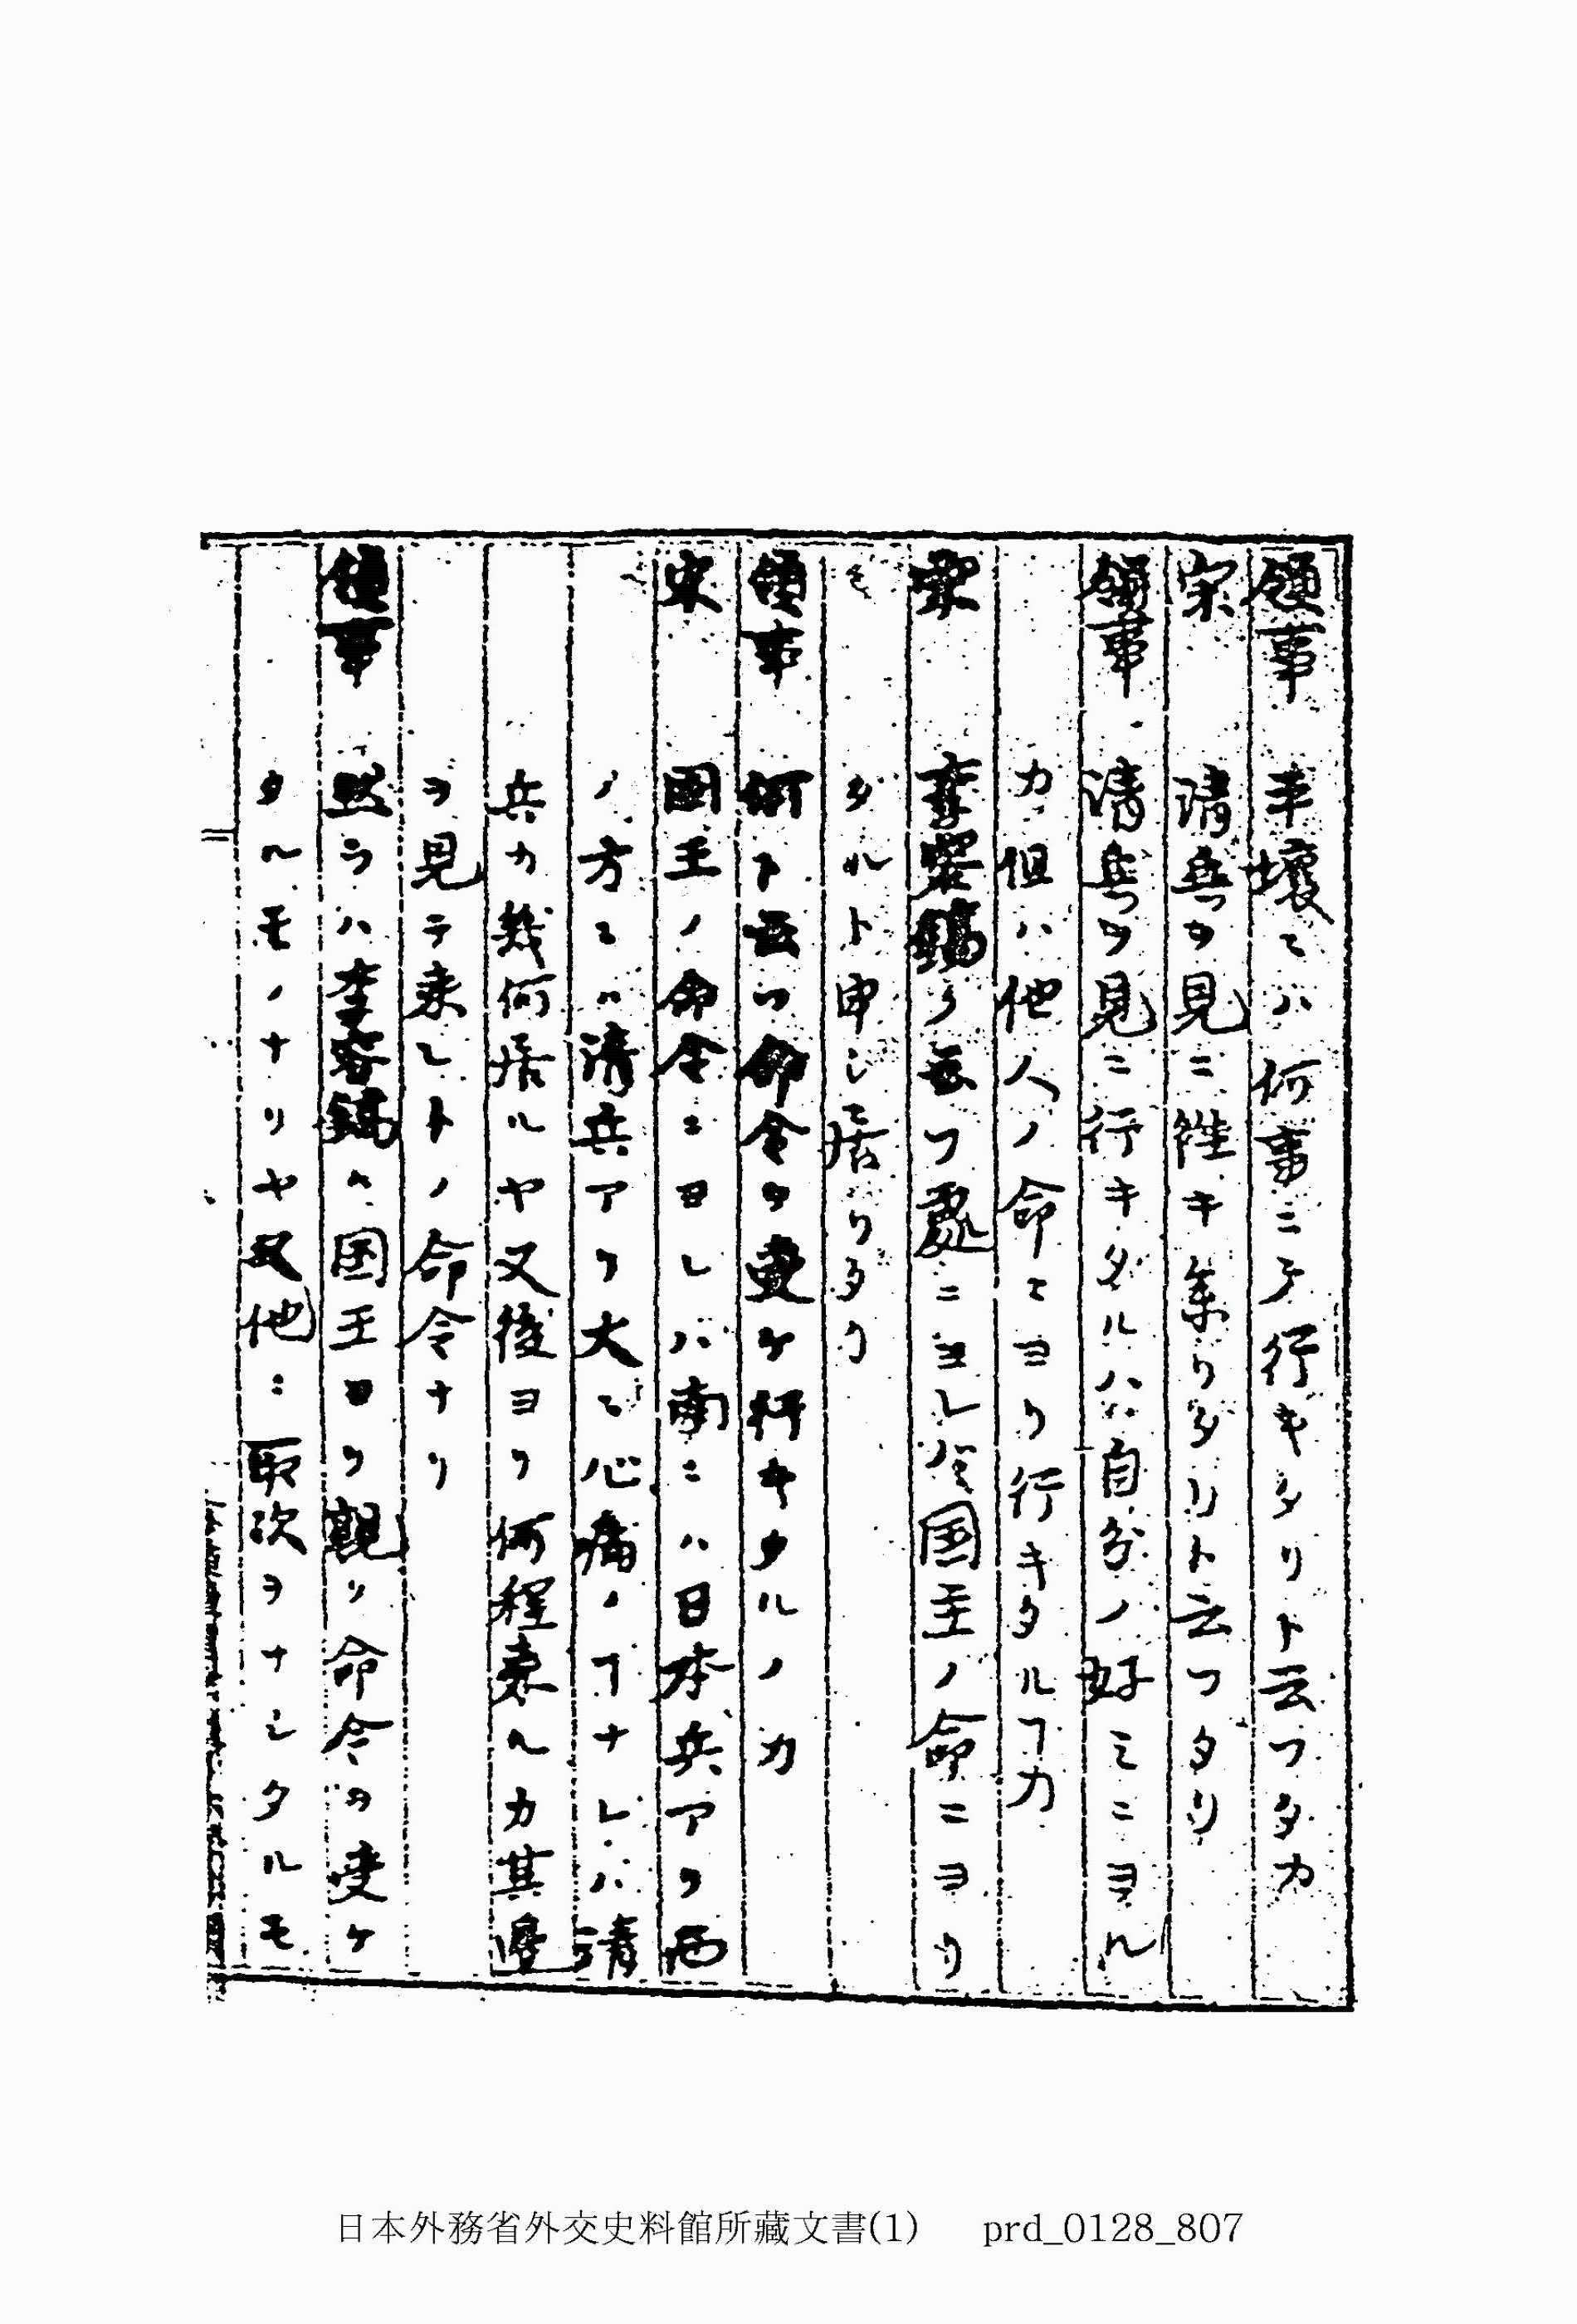 領事 丰壌ニハ何事ニテ行キタリト云フタカ
宋 清兵ヲ見ニ徃キ参リタリト云フタリ
領事 清兵ヲ見ニ行キタルハ自分ノ好ミニヨル
カ但ハ他人ノ命ニヨリ行キタルヿカ
宋 李容鎬ノ云フ處ニヨレハ国王ノ命ニヨリ
タルト申シ居リタリ
領事 何ト云フ命令ヲ受ケ行キタルノカ
宋 國王ノ命令ニヨレハ南ニハ日本兵アリ西
ノ方ニハ清兵アリ大ニ心痛ノヿナレハ清
兵カ幾何居ルヤ又後ヨリ何程来ルカ其邉
ヲ見テ来レトノ命令ナリ
領事 然ラハ李容鎬ハ国王ヨリ親リ命令ヲ受ケ
タルモノナリヤ又他ニ取次ヲナシタルモ
日本外務省外交史料館所藏文書(1) prd_0128_807